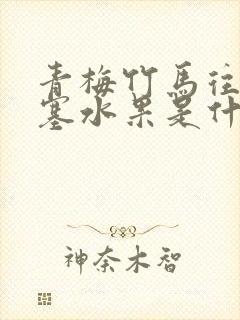 青梅竹馬往
塞水果是什
神奈木智